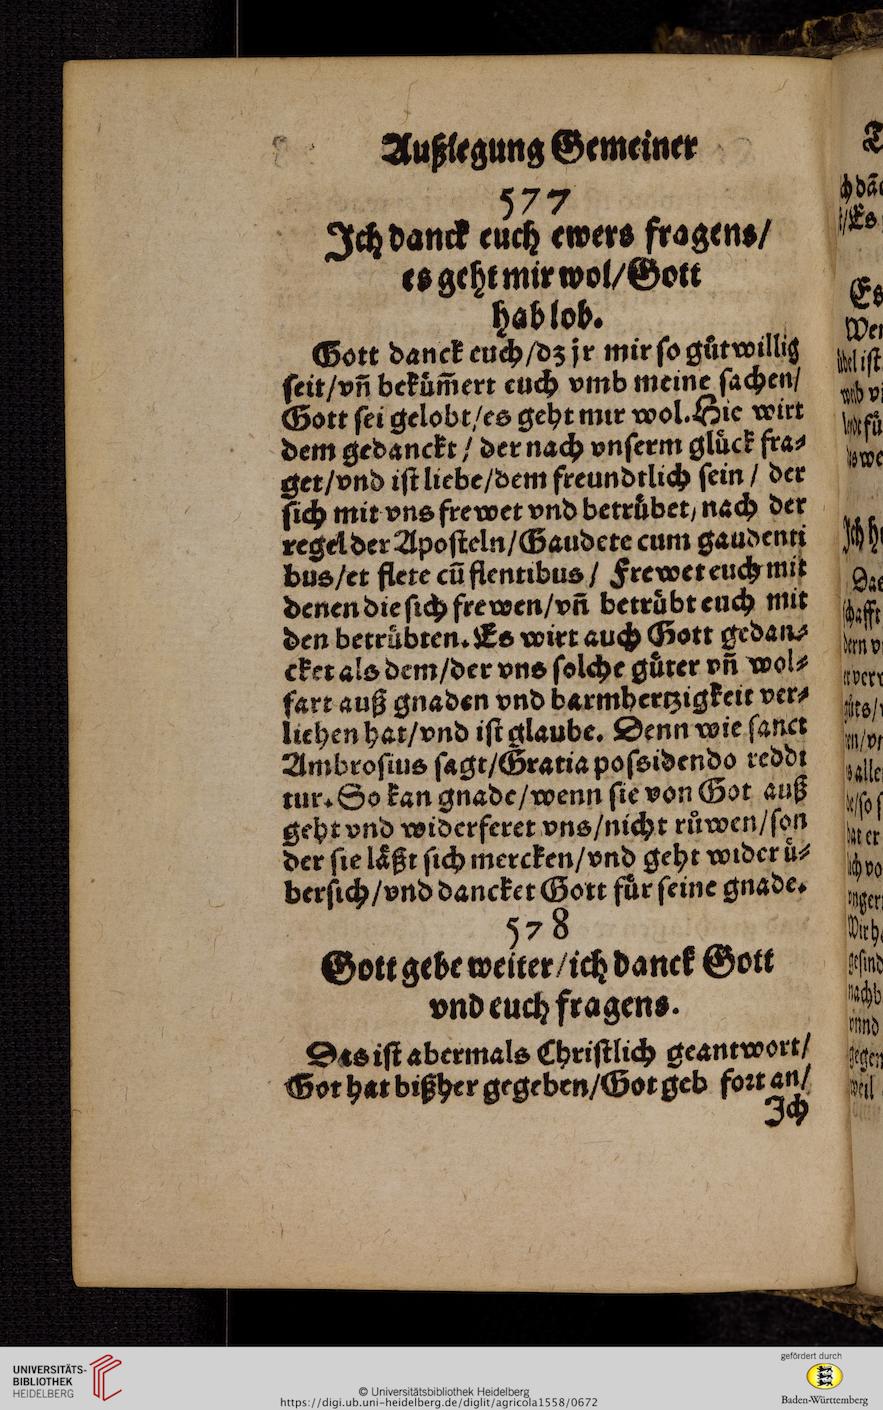 Außlegung Gemeiner
577
Ich danck euch ewers fragens/
es geht mir wol/Gott
hab lob.
Gott danck euch/dz jr mir so gůtwillig
seit/vñ bekům̃ert euch vmb meine sachen/
Gott sei gelobt/es geht mir wol. Hie wirt
dem gedanckt/ der nach vnserm glůck fra⸗
get/vnd ist liebe/dem freundtlich sein/ der
sich mit vns frewet vnd betrůbet/ nach der
regel der Aposteln/Gaudete cum gaudenti
bus/et flete cū flentibus/ Frewet euch mit
denen die sich frewen/vñ betrůbt euch mit
den betrůbten. Es wirt auch Gott gedan⸗
cket als dem/der vns solche gůter vñ wol⸗
fart auß gnaden vnd barmhertzigkeit ver⸗
liehen hat/vnd ist glaube. Denn wie sanct
Ambrosius sagt/Gratia possidendo reddi
tur. So kan gnade/wenn sie von Got auß
geht vnd widerferet vns/nicht růwen/son
der sie låßt sich mercken/vnd geht wider ů⸗
bersich/vnd dancket Gott fůr seine gnade.
578
Gott gebe weiter/ich danck Gott
vnd euch fragens.
Das ist abermals Christlich geantwort/
Got hat bißher gegeben/Got geb fort an/
Ich
UNIVERSITÄTS-
BIBLIOTHEK
HEIDELBERG
© Universitätsbibliothek Heidelberg
https://digi.ub.uni-heidelberg.de/diglit/agricola1558/0672
gefördert durch
Baden-Württemberg